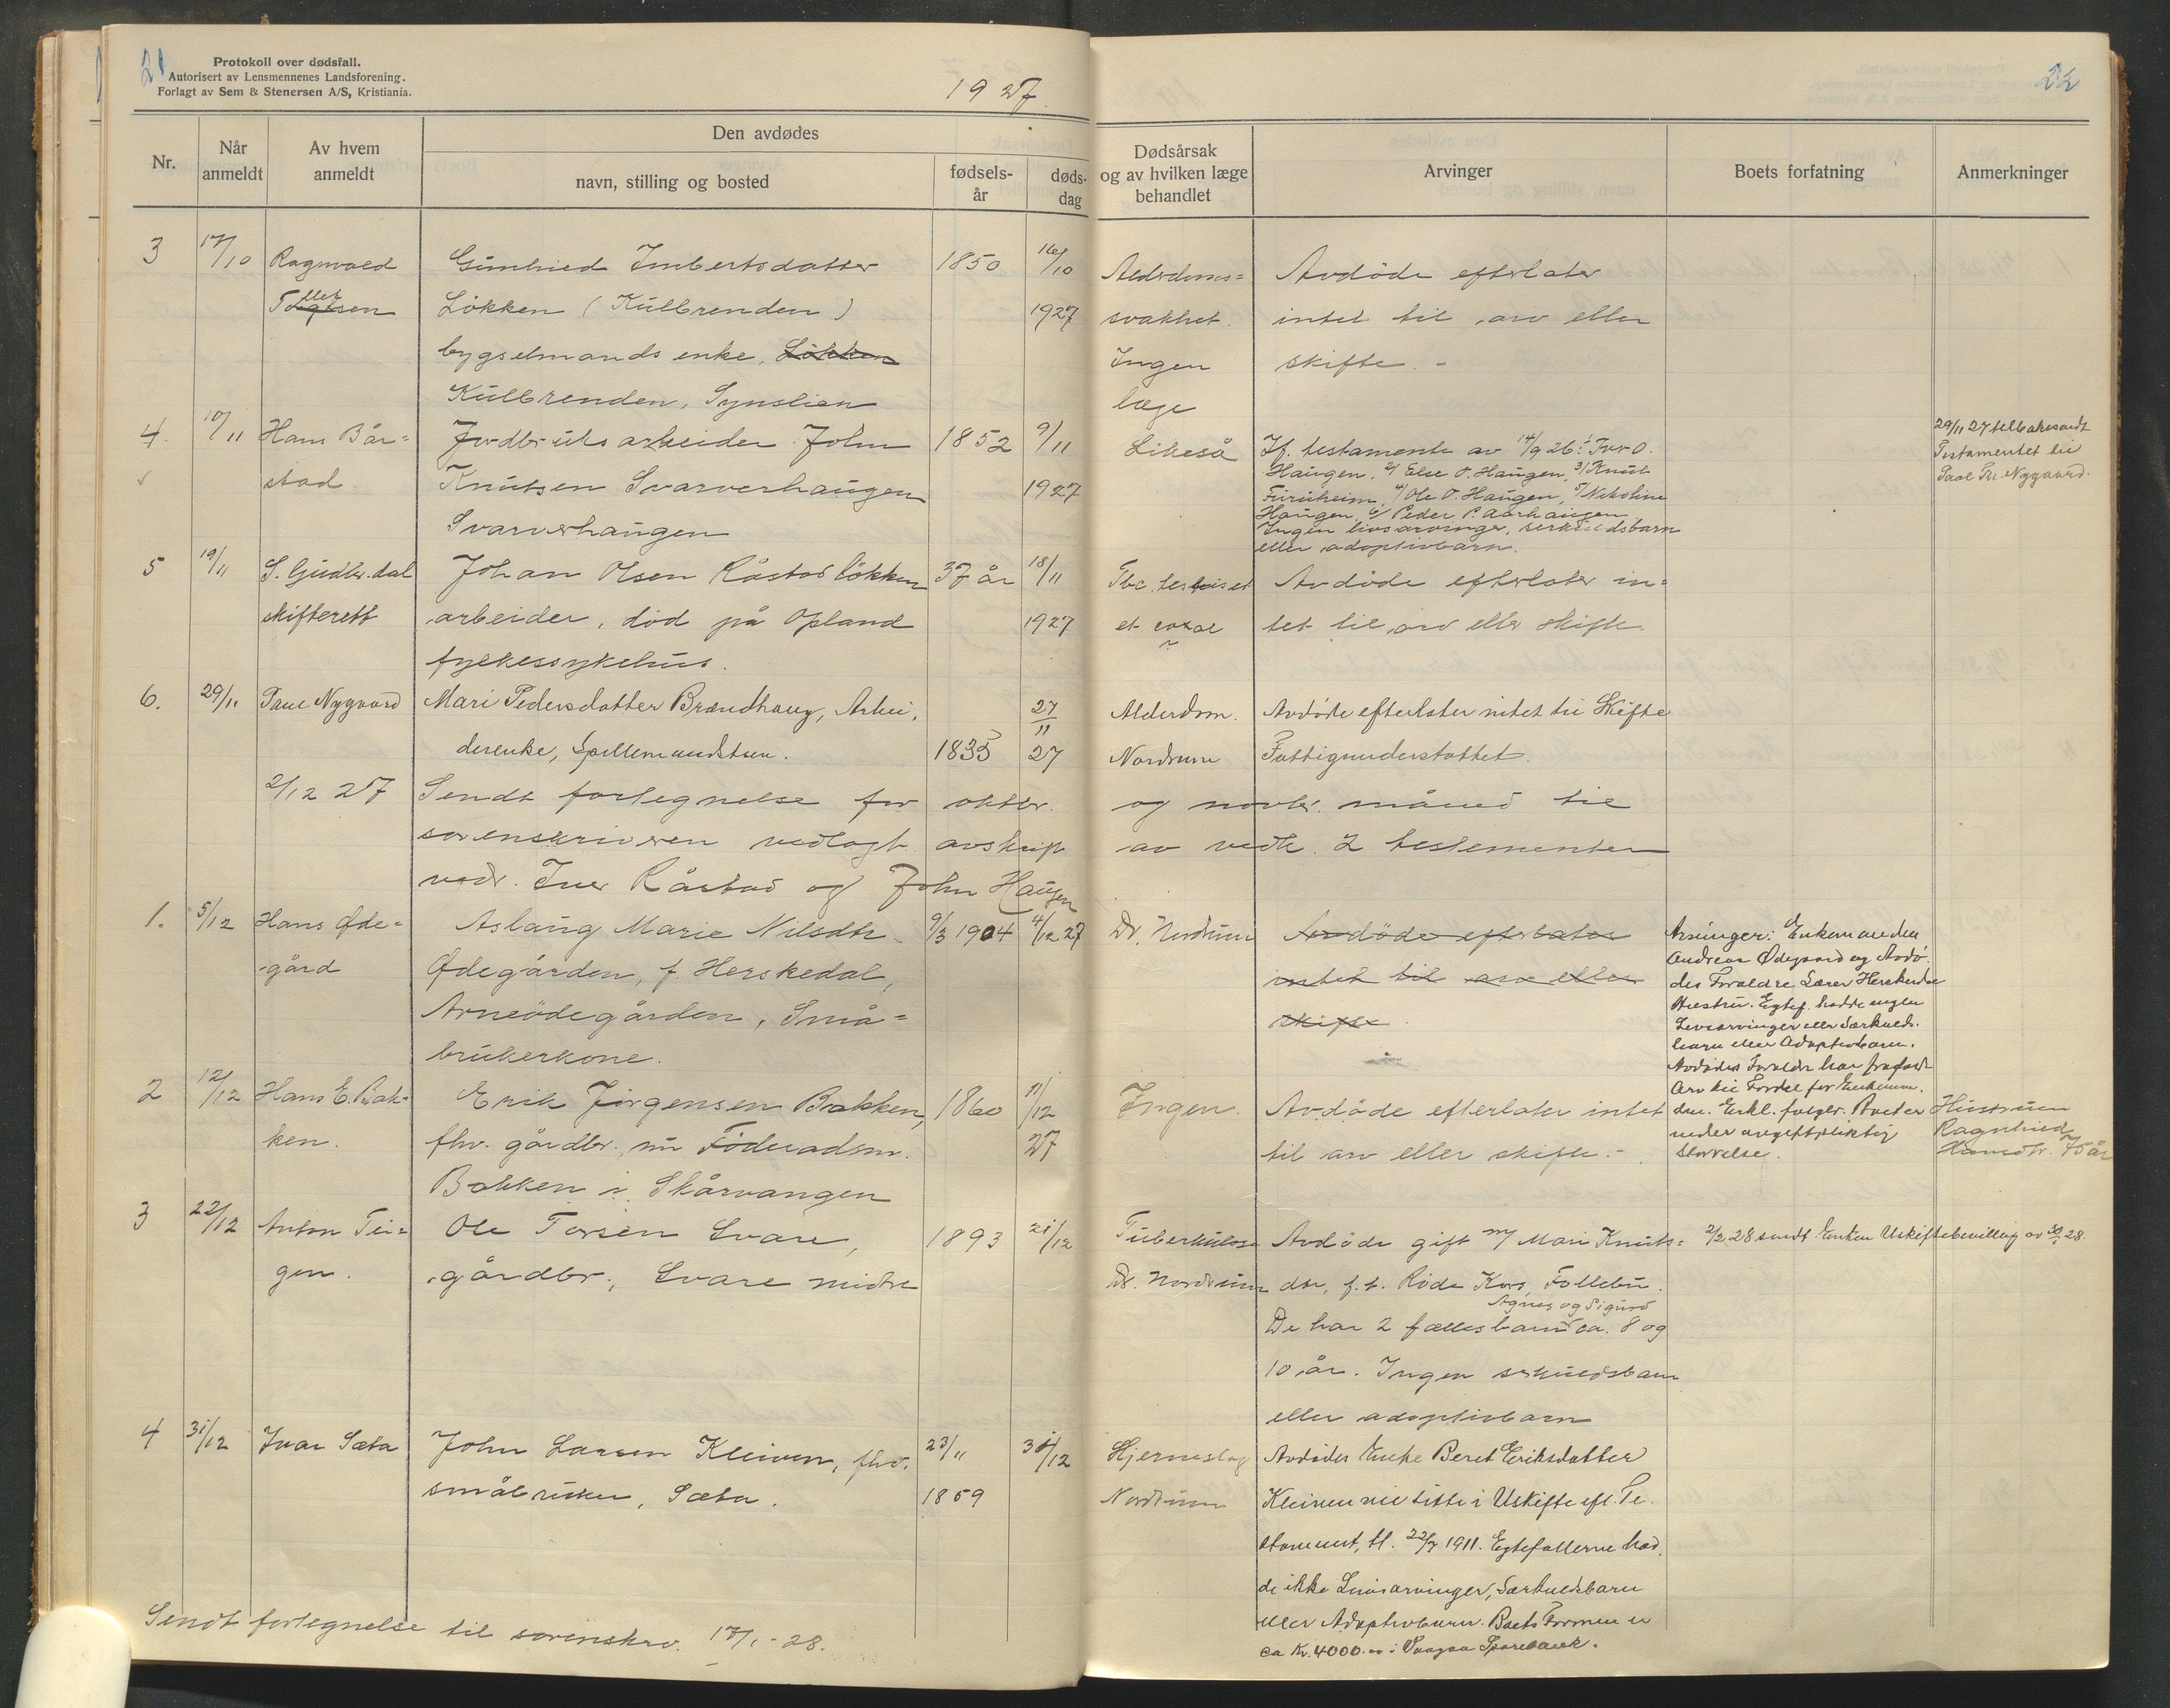 21
Protokoll over dødsfall.
Autorisert av Lensmennenes Landsforening.
Forlagt av Sem & Stenersen A/S, Kristiania.
1927.
Nr.
Når anmeldt
Av hvem anmeldt
Den avdødes
navn, stilling og bosted
fødsels-år
døds-dag
3 17/10 Ragnvald Gunhild Imbertsdatter 1850 16/10
Løkken (Kulbrenden) 1927
bygselmands enke, Løkken
Kulbrenden, Synslien
4. 10/11 Hans Bår= Jordbruksarbeider John 1852 9/11
stad Knutsen Svarverhaugen 1927
Svarverhaugen
5 19/11 S. Gudbr.dal Johan Olsen Råstad Løkken 37 år 18/11
skifterett arbeider, død på Opland 1927
fylkessykehus.
6. 29/11 Paul Nygaard Mari Pedersdatter Brændhaug, Arbei- 27/11
derenke, 1835 27
2/12 27 Sendt fortegnelse for oktbr.
sorenskriveren vedlagt avskrift
vedr. Iver Råstad og John Haugen
1. 5/12 Hans Øde= Aslaug Marie Nilsdtr. 9/3 1904 4/12 27
gård Ødegården, f. Herskedal,
Arneødegården, Små=
brukerkone.
2 12/12 Hans E. Bak- Erik Jørgensen Bakken, 1860 11/12
ken. fhv. gårdbr., nu Føderadsm. 27
Bakken i Skårvangen
3 22/12 Anton Tei= Ole Torsen Svare, 1893 21/12
gen. gårdbr., Svare midtre
4 31/12 Ivar Sæta John Larsen Kleiven, fhv. 23/11 31/12
småbruker, Sæta. 1859
Sendt fortegnelse til sorenskrv. 17/1-28.
22
Dødsårsak og av hvilken læge behandlet
Arvinger
Boets forfatning
Anmerkninger
Alderdoms= Avdøde efterlater
svakhet. intet til arv eller
Ingen skifte.-
læge
Likeså Jf. testamente av 14/9 26: 1/ Iver O.
Haugen, 2/ Else O. Haugen, 3/ Knut
Furuheim, 4/ Ole O. Haugen, 5/ Nikoline
Haugen, 6/ Peder P. Aarhaugen
Ingen livsarvinger, særkuldsbarn
eller adoptivbarn.
29/11 27 tilbakesendt
Testamentet til
Paal Nygaard.
Avdøde efterlater in=
et coxae tet til arv eller skifte.
Alderdom. Avdøde efterlater intet til Skifte
Nordrum Fattigunderstøttet.
og novbr. måned til
av vedk. 2 testementer
Dr. Nordrum Avdøde efterlater
intet til arv eller
skifte
Arvinger: Enkemanden
Andreas Ødegaard og Avdø-
des Forældre Lærer Herskedal
Hustru. Egtef. hadde ingen
Livsarvinger eller Særkulds-
barn eller Adoptivbarn.
Avdødes Forældre har frafaldt
Arv til Fordel for Enkeman-
den. Erkl. følger. Boet er
under avgiftspliktig
Størrelse.
Ingen. Avdøde efterlater intet
til arv eller skifte.-
Hustruen
Ragnhild
Hansdtr. 75 år
Tuberkulose Avdøde gift m/ Mari Knuts=
Dr. Nordrum dtr, f.t. Røde Kors, Follebu.
Agnes og Sigurd
De har 2 fællesbarn ca. 8 og
10 år. Ingen særkuldsbarn
eller adoptivbarn
2/2 28 sendt Enken Uskiftebevilling av 30/1 28.
Hjerneslag Avdødes Enke Beret Eriksdatter
Nordrum Kleiven vil sitte i Uskifte efl. Te-
stament, tl. 22/7 1911. Egtefællerne had-
de ikke Livsarvinger, Særkuldsbarn
eller Adoptivbarn. Boets Formue er
ca Kr. 4000.oo i Vaagaa Sparebank.